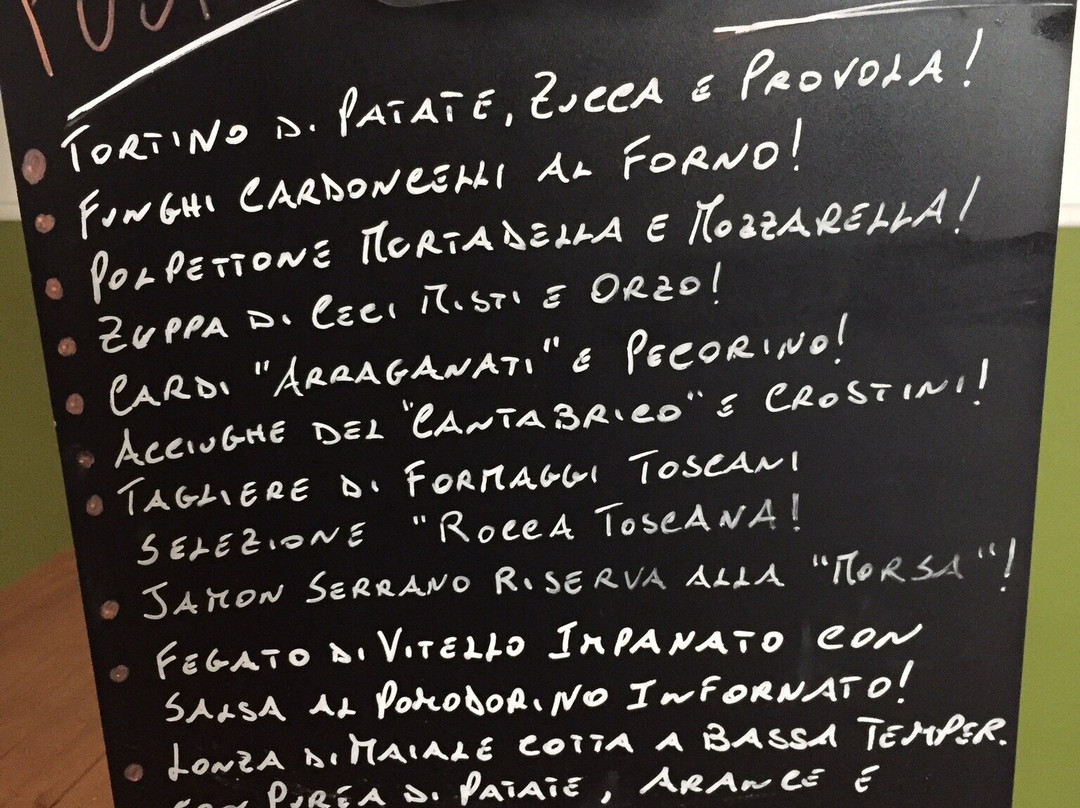 TORTINO DI PATATE, ZUCCA E PROVOLA!
FUNGHI CARDONCELLI AL FORNO!
POLPETTONE MORTADELLA E MOZZARELLA!
ZUPPA DI CECI MISTI E ORZO!
CARDI "ARRAGANATI" E PECORINO!
ACCIUGHE DEL "CANTABRICO" E CROSTINI!
TAGLIERE DI FORMAGGI TOSCANI
SELEZIONE "ROCCA TOSCANA!
JAMON SERRANO RISERVA ALLA "MORSA"!
FEGATO DI VITELLO IMPANATO CON
SALSA AL POMODORINO INFORNATO!
LONZA DI MAIALE COTTA A BASSA TEMPER.
CON PUREA DI PATATE, ARANCE E